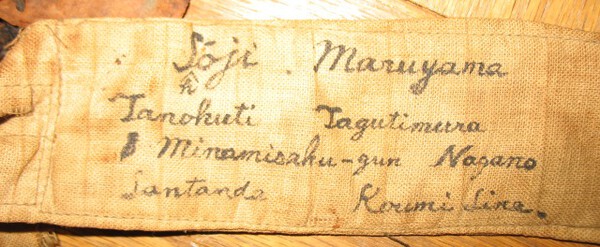 Sōji . Maruyama
h
Tanokuti Tagutimura
Minamisaku-gun Nagano
Santanda Koumi Line.